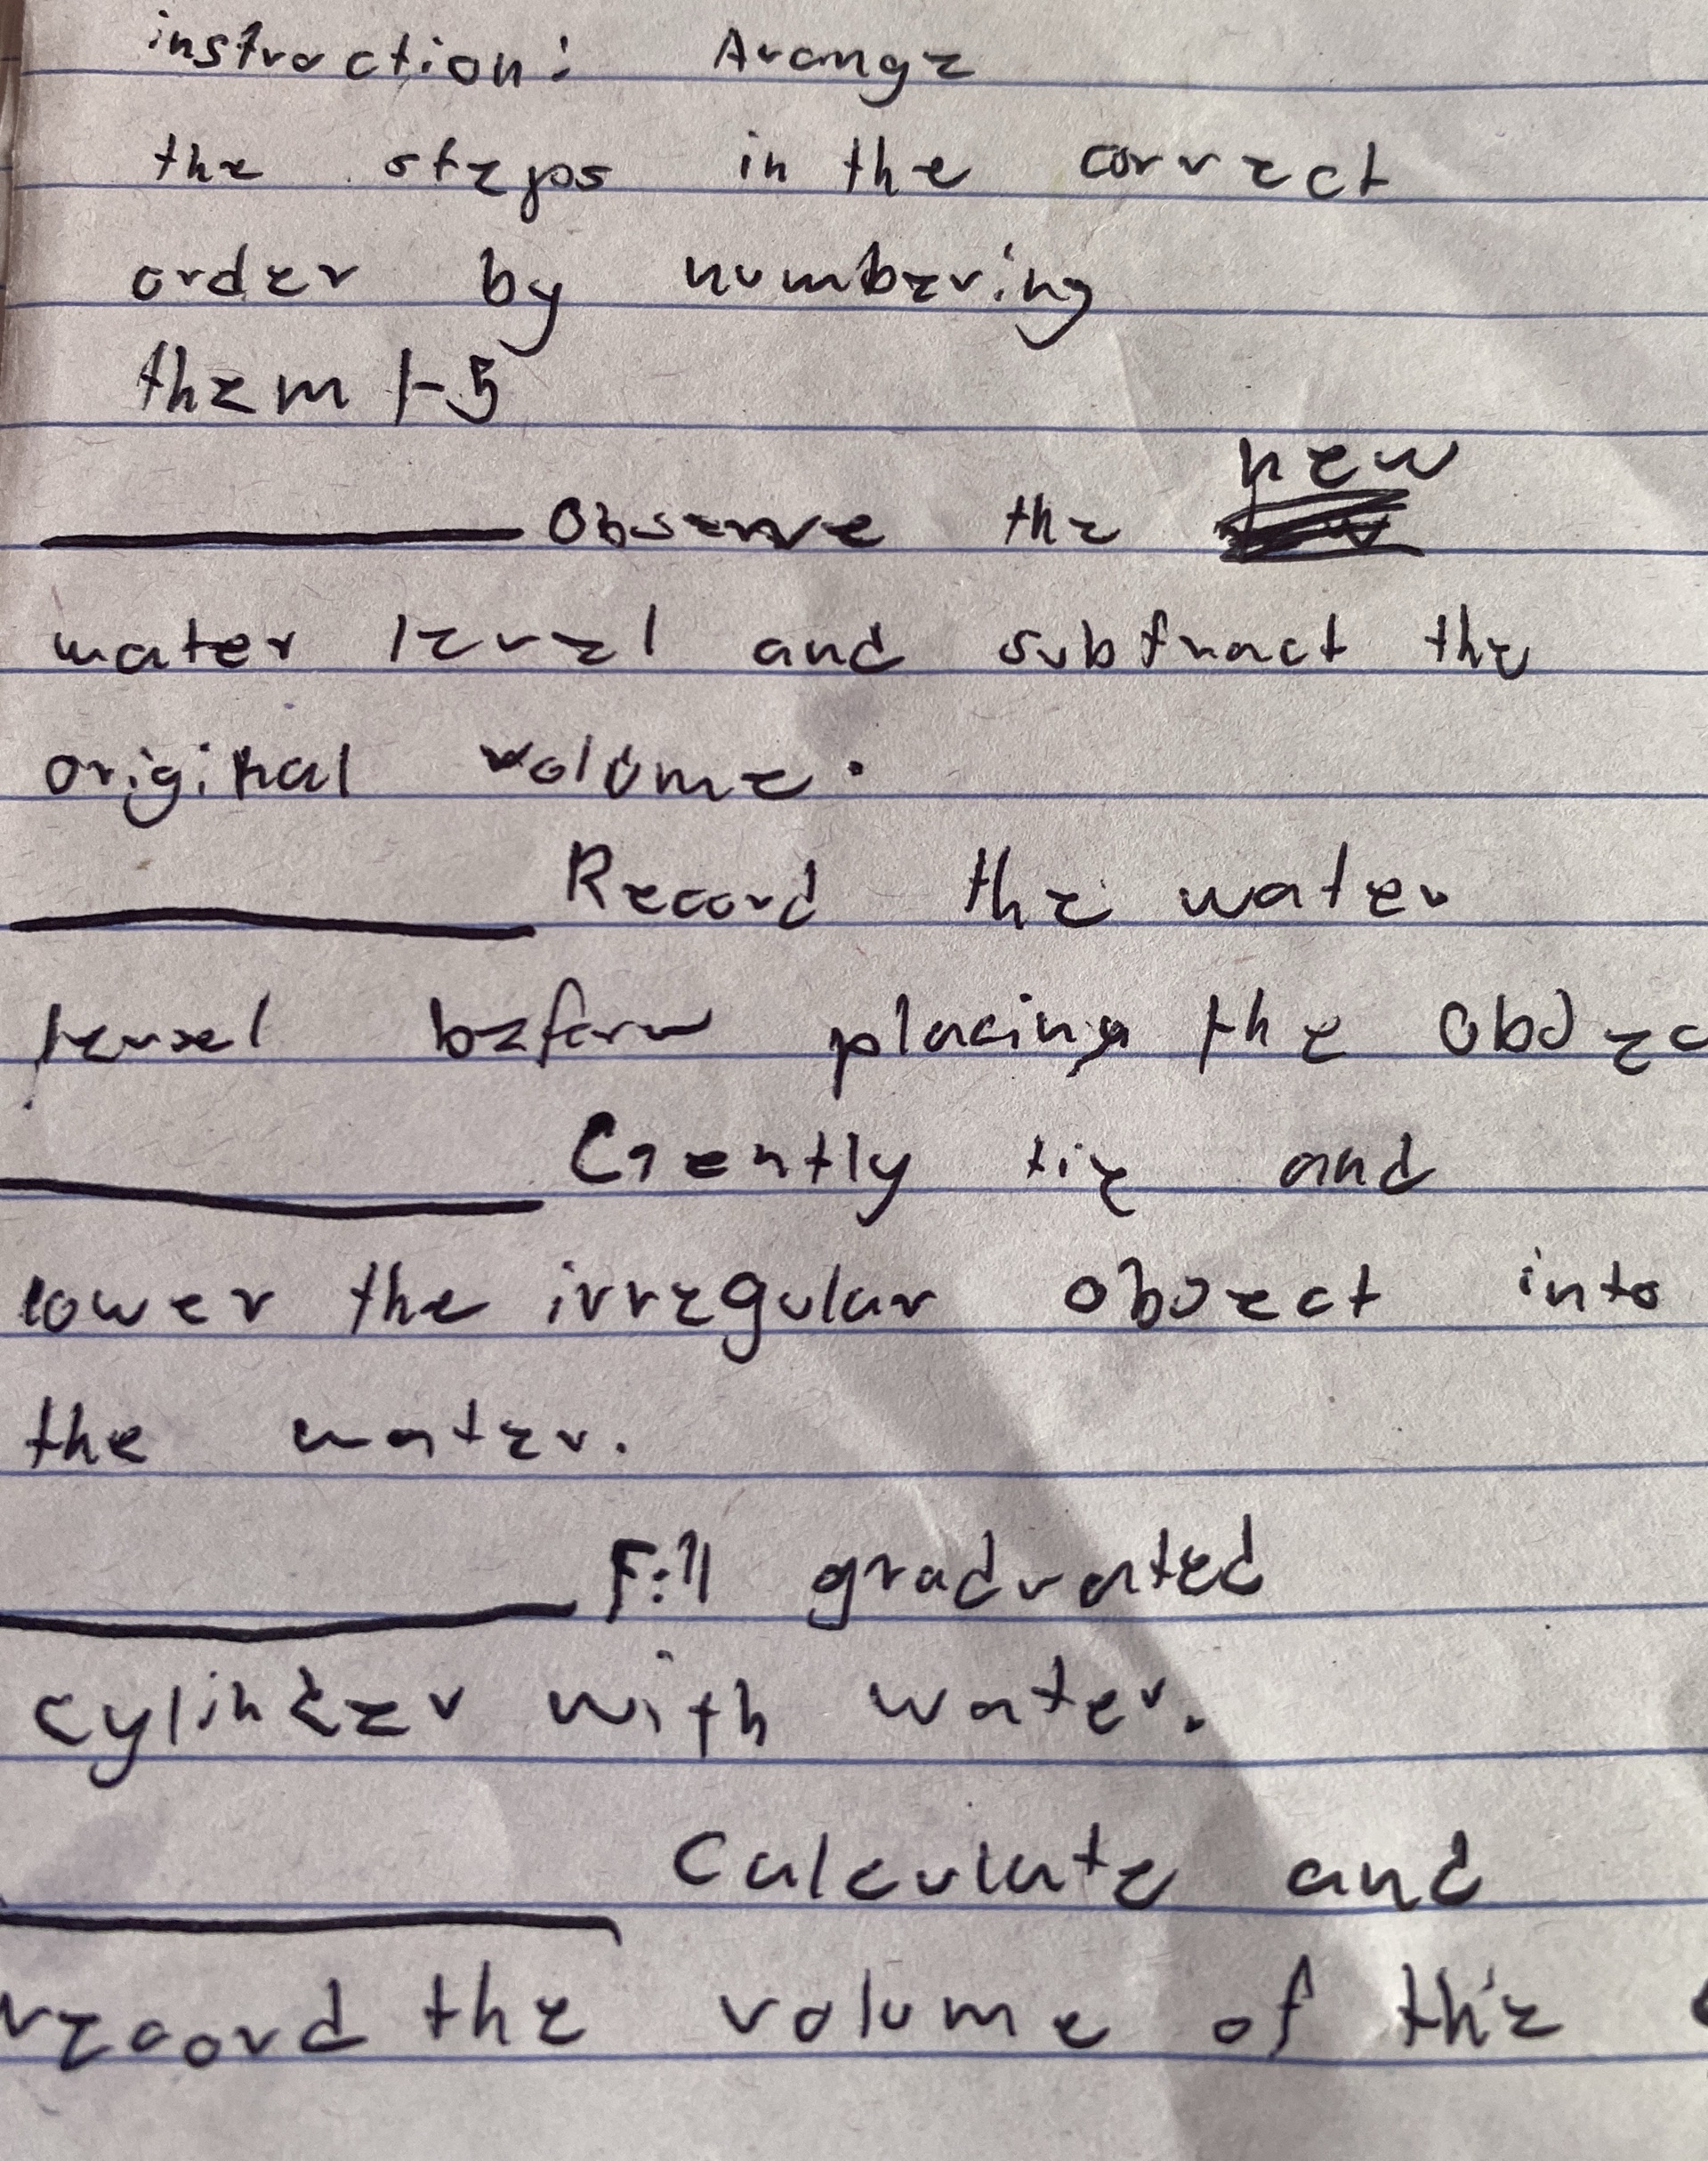 instruction: Arange
the steps in the correct
order by numbering
them 1-5
new
Observe the
water level and subtract the
original volume.
Record the water
level before placing the Objec
Gently tie and
lower the irregular object into
the water.
Fill graduated
cylinder with water.
Calculate and
record the volume of the